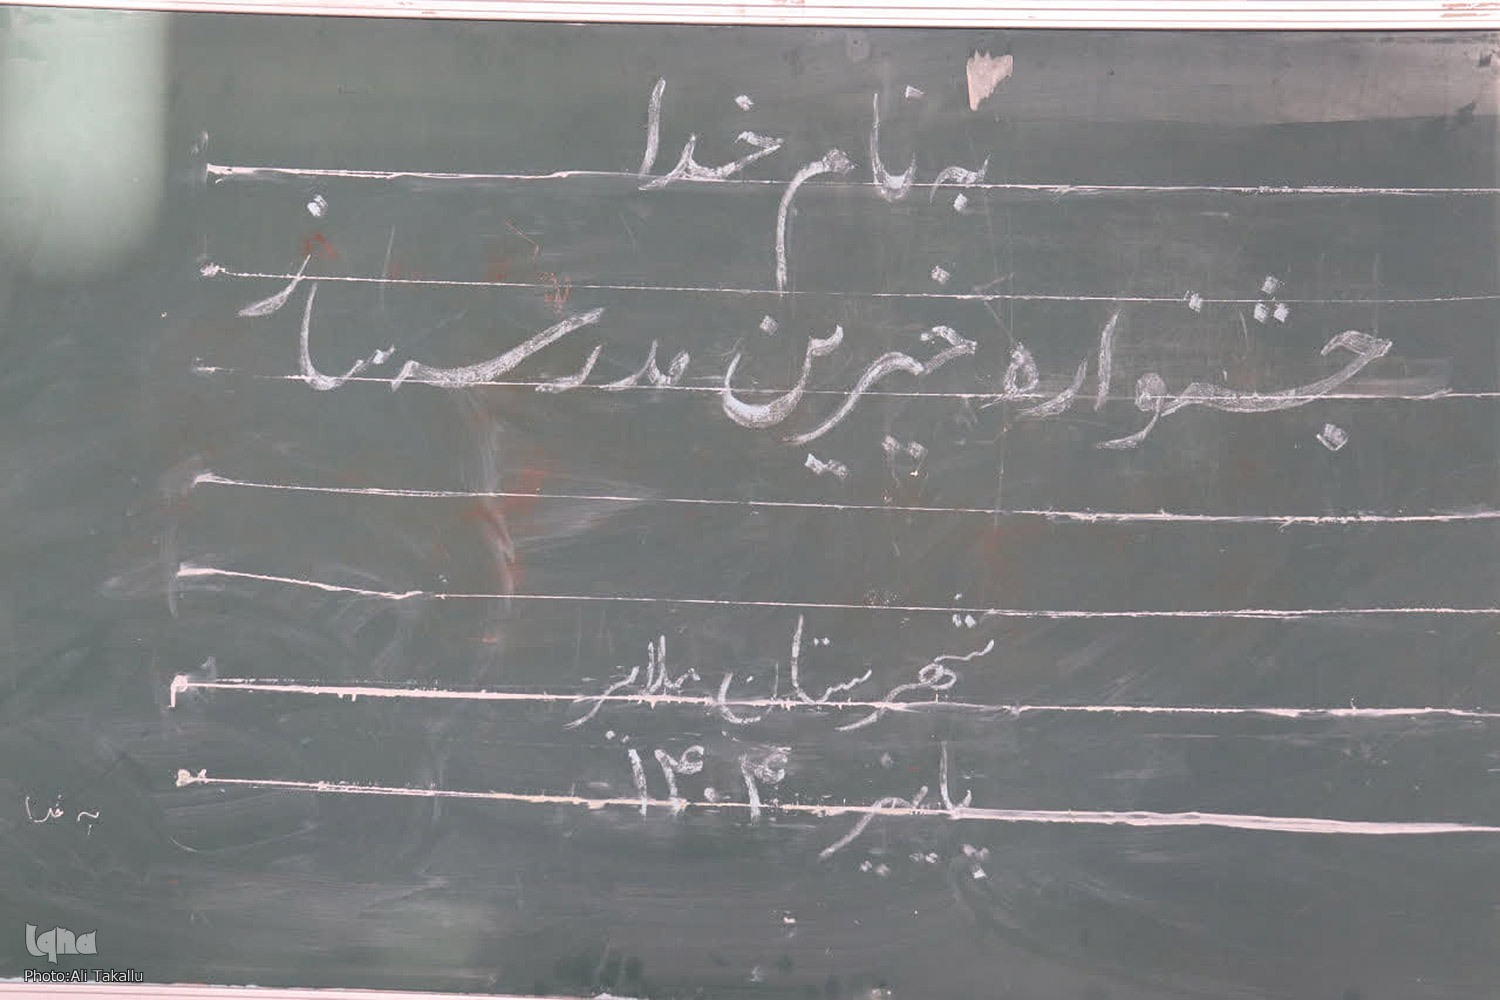 به نام خدا
جشنواره خیرین مدرسه ساز
شهرستان ملایر
پاییز ۱۴۰۴
به خدا
Iqna
Photo:Ali Takallu